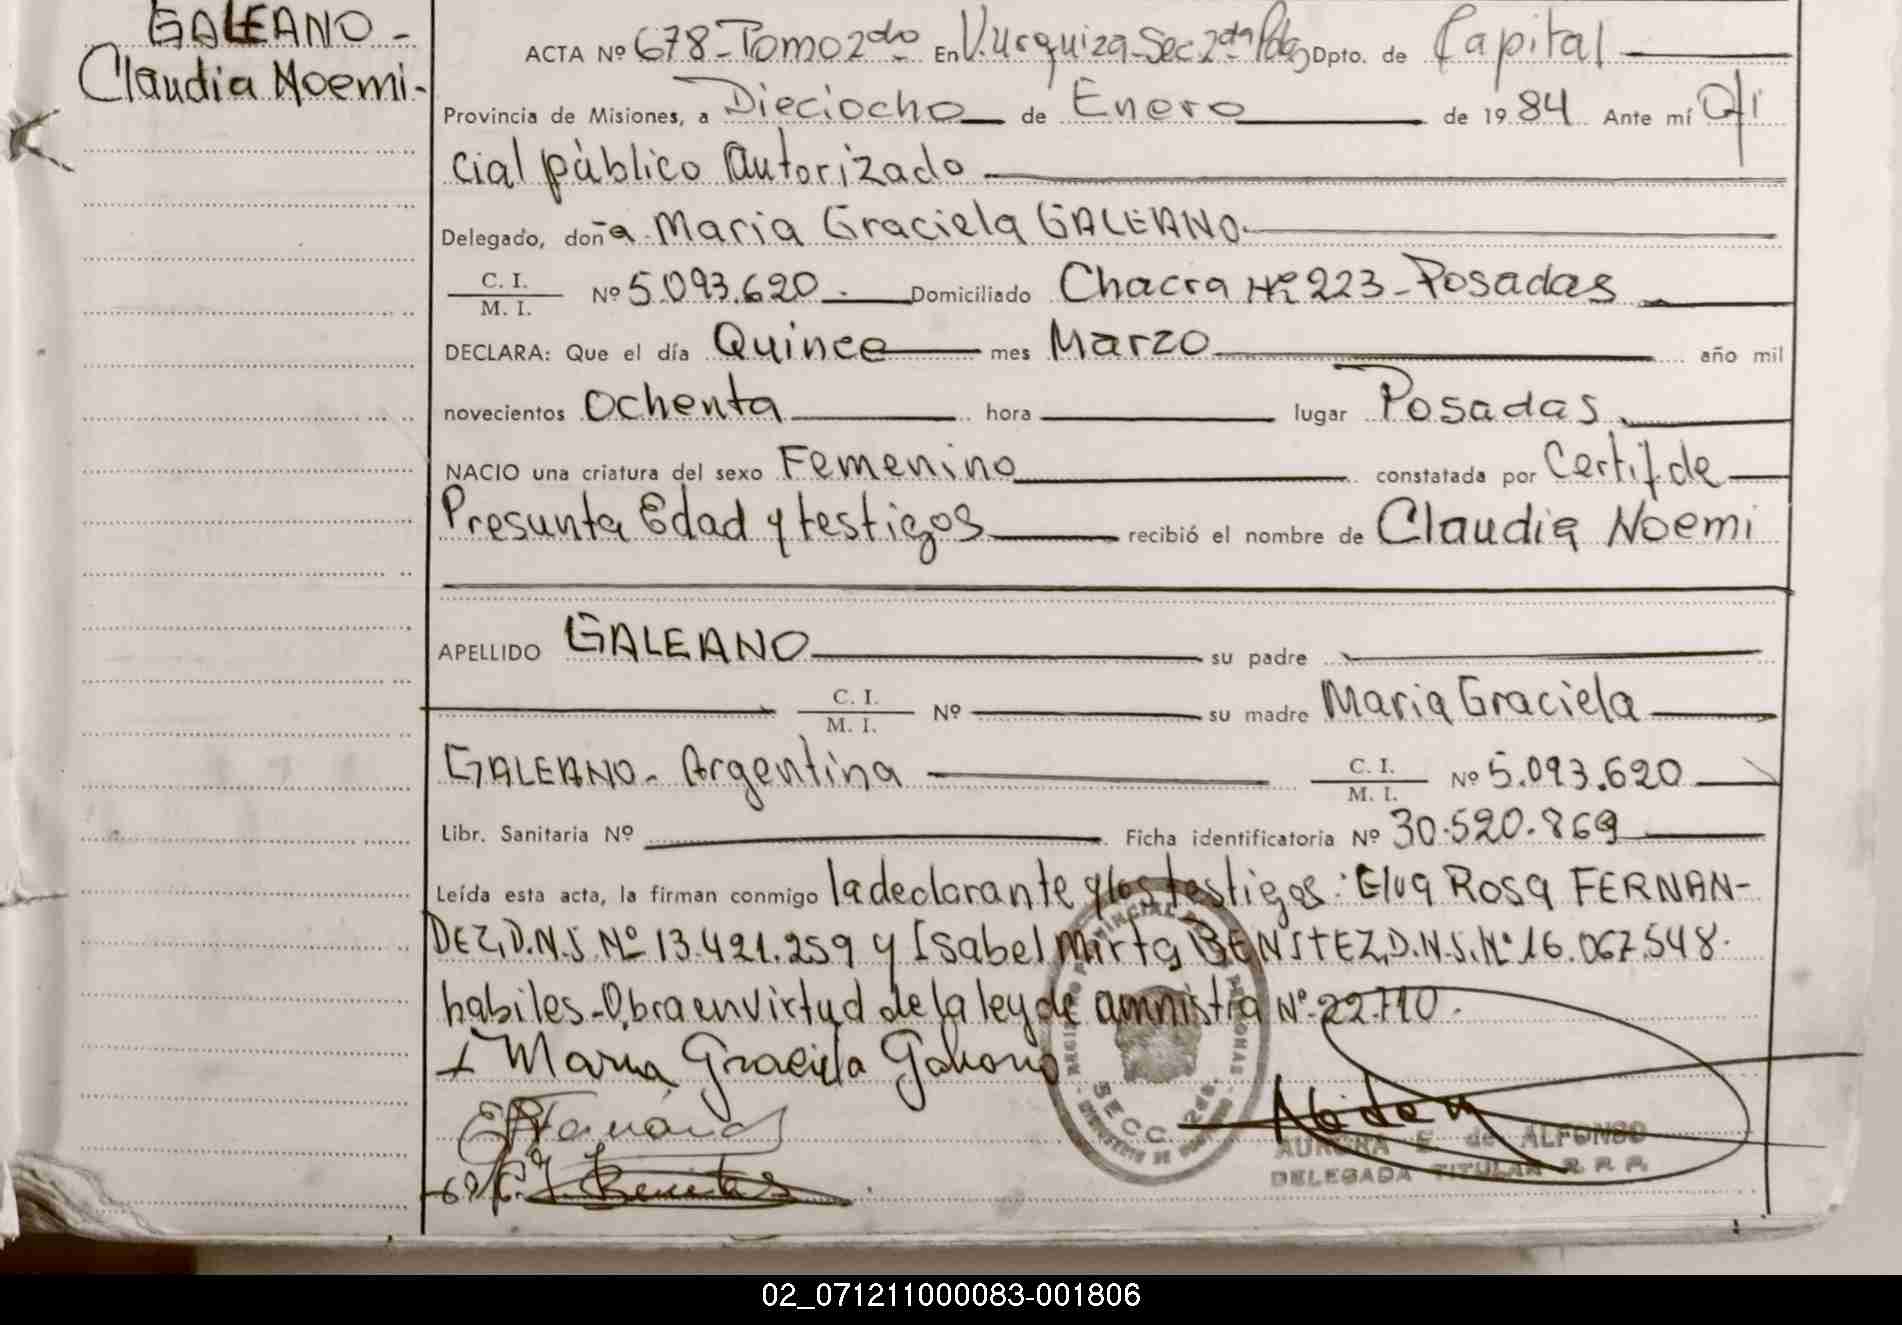 GALEANO -
Claudia Noemi -
ACTA Nº 678 - Tomo 2do En V. Urquiza - Sec 2da Pdas Dpto. de Capital
Provincia de Misiones, a Dieciocho de Enero de 1984 Ante mí Ofi
cial público Autorizado
Delegado, doña Maria Graciela GALEANO.
C. I.
M. I.
Nº 5.093.620. Domiciliado Chacra Nº 223 - Posadas
DECLARA: Que el día Quince mes Marzo año mil
novecientos Ochenta hora lugar Posadas.
NACIO una criatura del sexo Femenino constatada por Certif. de
Presunta Edad y testigos recibió el nombre de Claudia Noemi
APELLIDO GALEANO su padre
C. I.
M. I.
Nº su madre Maria Graciela
GALEANO - Argentina
C. I.
M. I.
Nº 5.093.620
Libr. Sanitaria Nº Ficha identificatoria Nº 30.520.869
Leída esta acta, la firman conmigo la declarante y los testigos: Elva Rosa FERNAN-
DEZ, D.N.I. Nº 13.421.259 y Isabel Mirta BENITEZ, D.N.I. Nº 16.067.548.
habiles - Obra en virtud de la ley de amnistia Nº 22.710.
Maria Graciela Galeano
SECC. 2da.
AURORA E. de ALFONSO
DELEGADA TITULAR R. P. P.
02_071211000083-001806